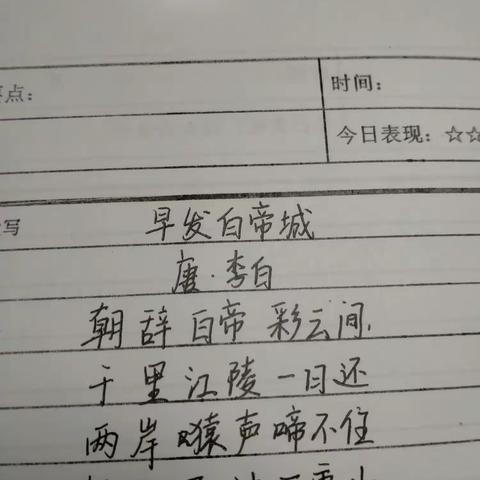 点：
时间：
今日表现：☆☆
写
早发白帝城
唐·李白
朝辞白帝彩云间，
千里江陵一日还
两岸猿声啼不住